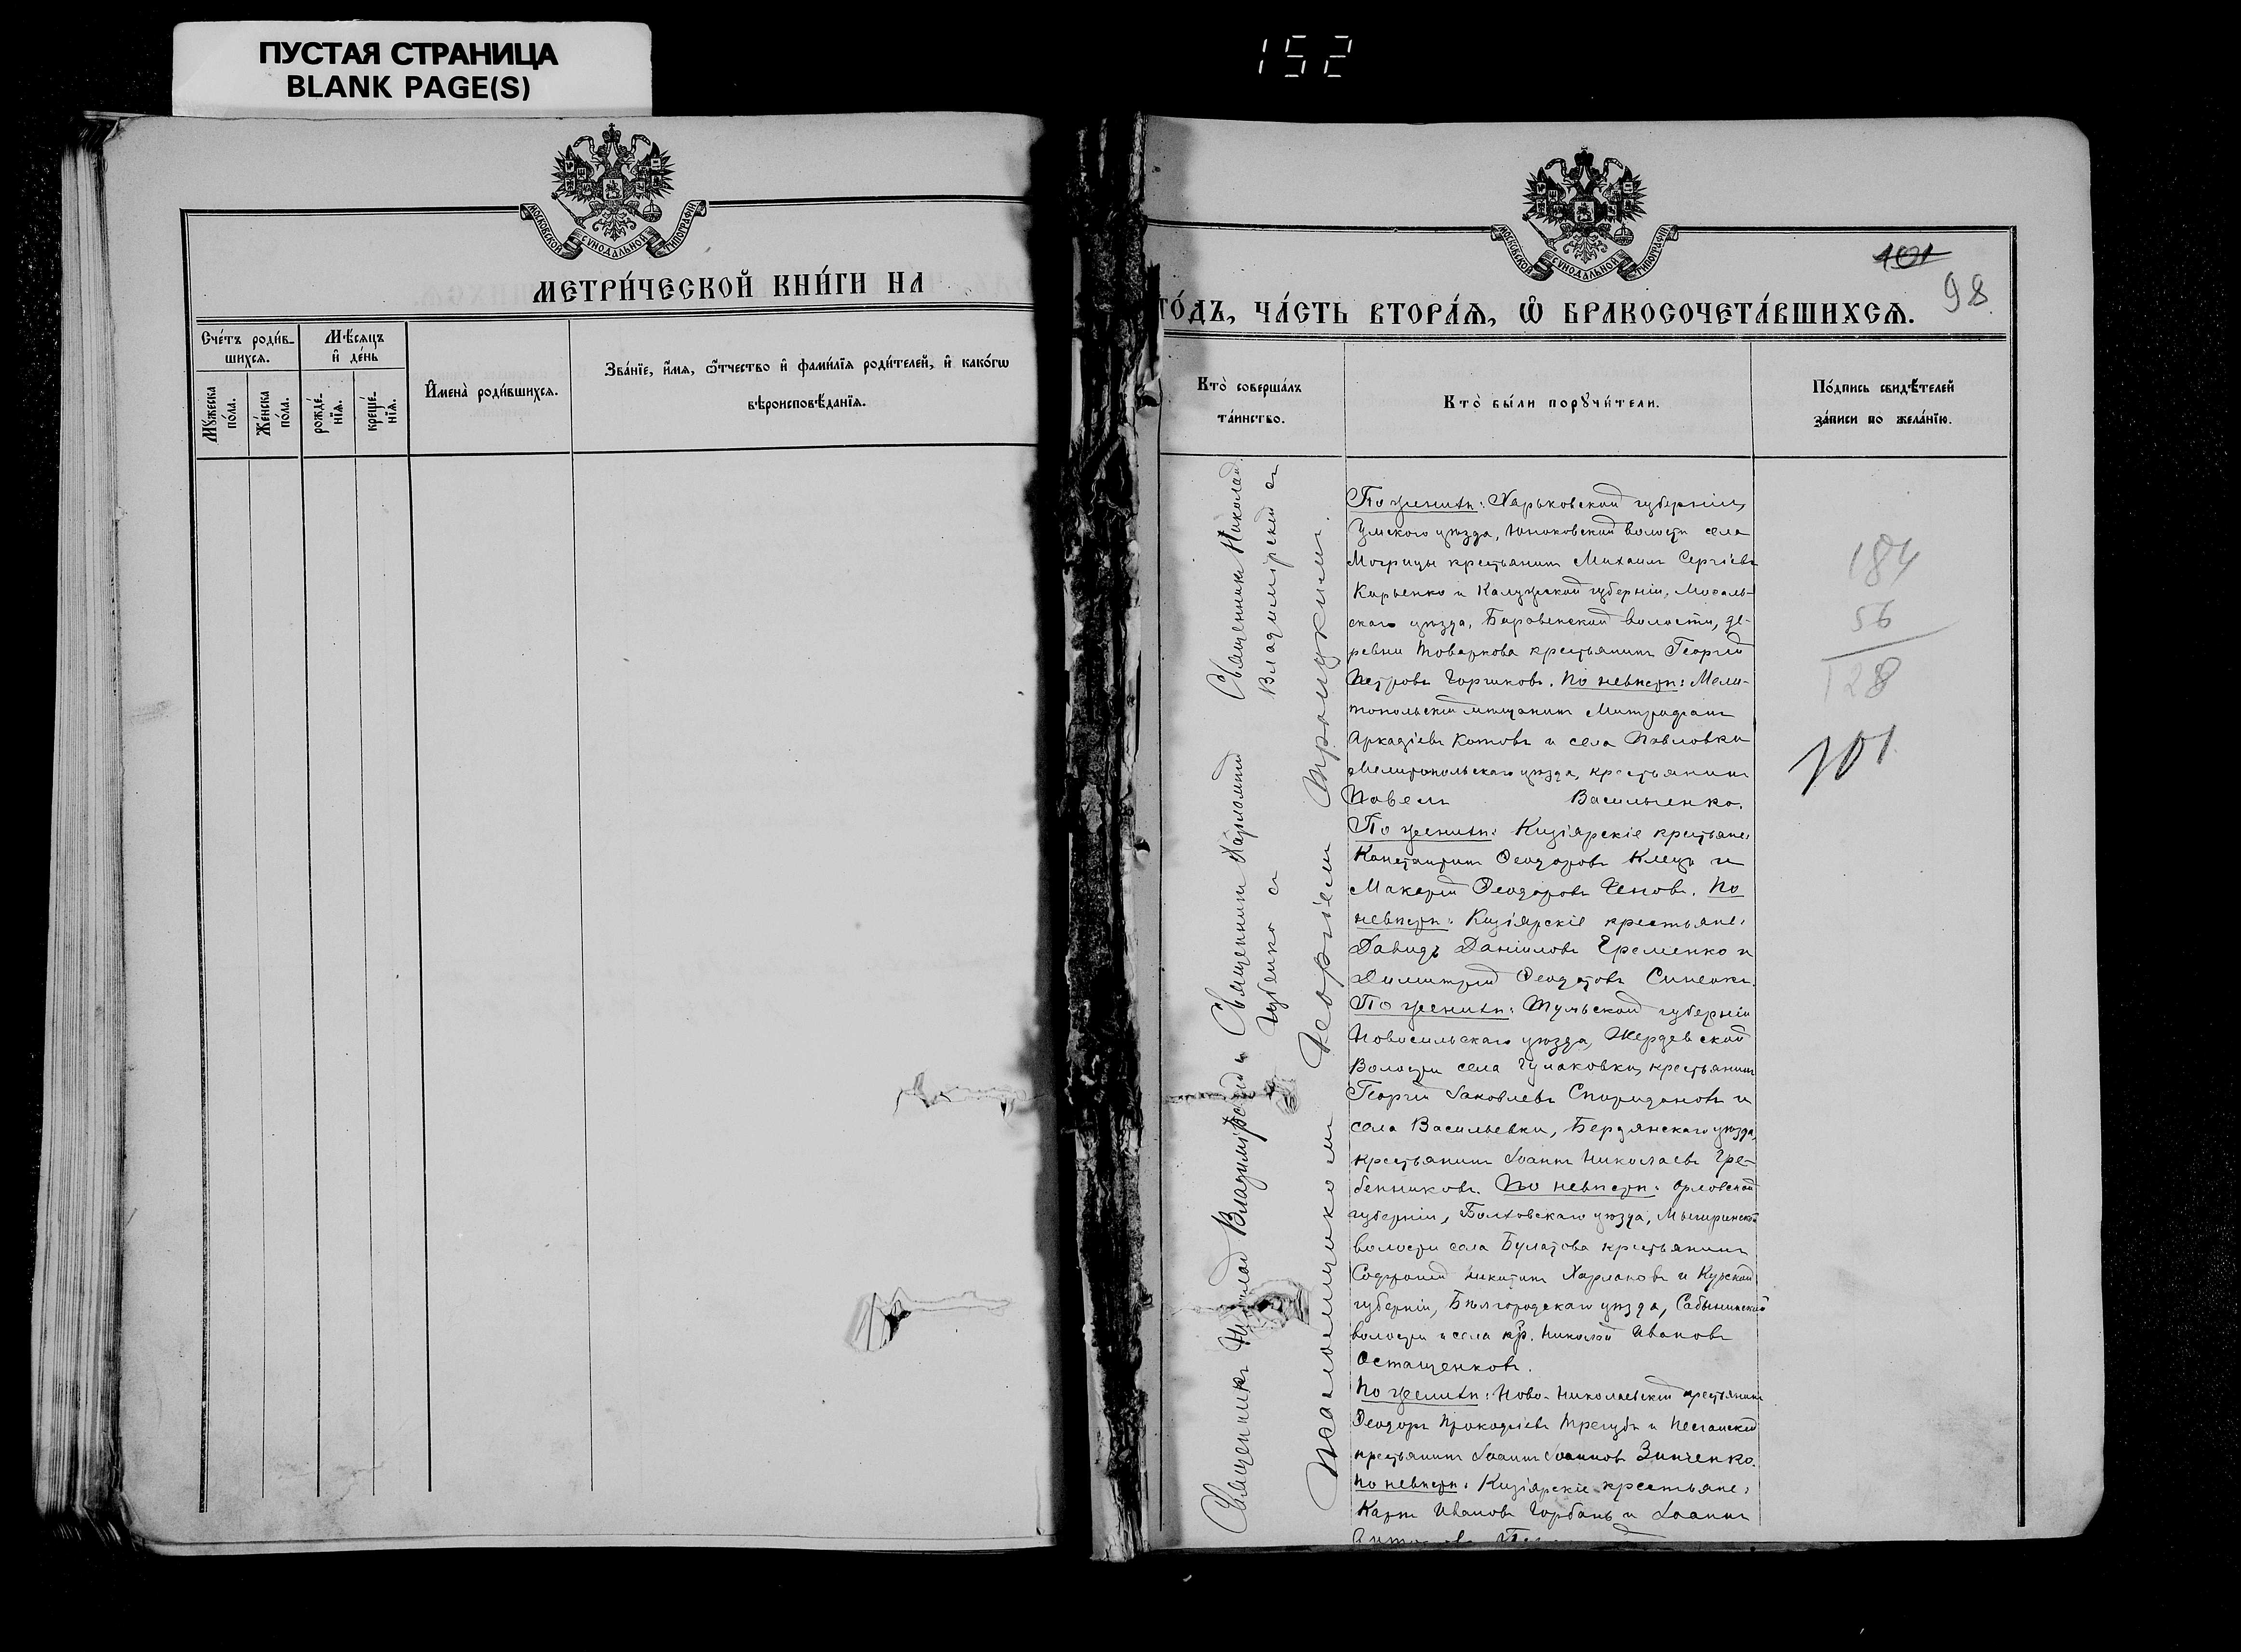 ПУСТАЯ СТРАНИЦА
BLANK PAGE(S)
152
МОСКОВСКОЙ СѴНОДАЛЬНОЙ ТИПОГРАФІИ
МЕТРИ́ЧЕСКОЙ КНИ́ГИ НА
Сче́тъ роди́в-
шихсѧ.
Мѣ́сѧцъ
и҆ де́нь
Мꙋ́жеска
по́ла.
Же́нска
по́ла.
рожде́-
нїѧ.
креще́-
нїѧ.
И҆мена̀ роди́вшихсѧ.
Зва́нїе, и҆́мѧ, ѻ҆́тчество и҆ фами́лїѧ роди́телей, и҆ како́гѡ
вѣроисповѣ́данїѧ.
МОСКОВСКОЙ СѴНОДАЛЬНОЙ ТИПОГРАФІИ
101
98
ГО́ДЪ, ЧА́СТЬ ВТОРА́Ѧ, Ѡ҆ БРАКОСОЧЕТА́ВШИХСѦ.
Кто̀ соверша́лъ
та́инство.
Кто̀ бы́ли порꙋчи́тели.
По́дпись свидѣ́телей
за́писи по жела́нїю.
Священникъ Николай
Владимірскій съ
Священникъ Харлампій
Губенко съ
Священникъ Николай Владимірскій и
Псаломщикомъ Георгіемъ Троицкимъ.
По женихѣ: Харьковской губерніи,
Сумского уѣзда, Юнаковской волости села
Могрицы крестьянинъ Михаилъ Сергіевъ
Кирьенко и Калужской губерніи, Мосаль-
скаго уѣзда, Боровенской волости, де-
ревни Товаркова крестьянинъ Георгій
Петровъ Горчиковъ. По невѣстѣ: Мели-
топольскій мѣщанинъ Митрофанъ
Аркадіевъ Котовъ и села Павловки
Мелитопольскаго уѣзда, крестьянинъ
Павелъ Васильченко.
По женихѣ: Кизіярскіе крестьяне:
Константинъ Ѳеодоровъ Клецъ и
Макарій Ѳеодоровъ Геновъ. По
невѣстѣ: Кизіярскіе крестьяне:
Давидъ Даніиловъ Еременко и
Димитрій
По женихѣ: Тульской губерніи
Новосильскаго уѣзда, Жердевской
Волости села крестьянинъ
Георгій Іаковлевъ Спиридоновъ и
села Васильевки, Бердянскаго уѣзда,
крестьянинъ Іоаннъ Николаевъ Гре-
бенниковъ. По невѣстѣ: Орловской
губерніи, Болховскаго уѣзда,
волости села Булатова крестьянинъ
Софроній Никитинъ Харлановъ и Курской
губерніи, Бѣлгородскаго уѣзда, Сабынинской
волости и села кр. Николай Ивановъ
Остащенковъ.
По женихѣ: Ново-Николаевскій крестьянинъ
Ѳеодоръ Прокофіевъ Трегубъ и Песчанскій
крестьянинъ Іоаннъ Іоанновъ Зинченко.
По невѣстѣ: Кизіярскіе крестьяне:
Карпъ Ивановъ Горбань и Іоаннъ
184
56
128
101